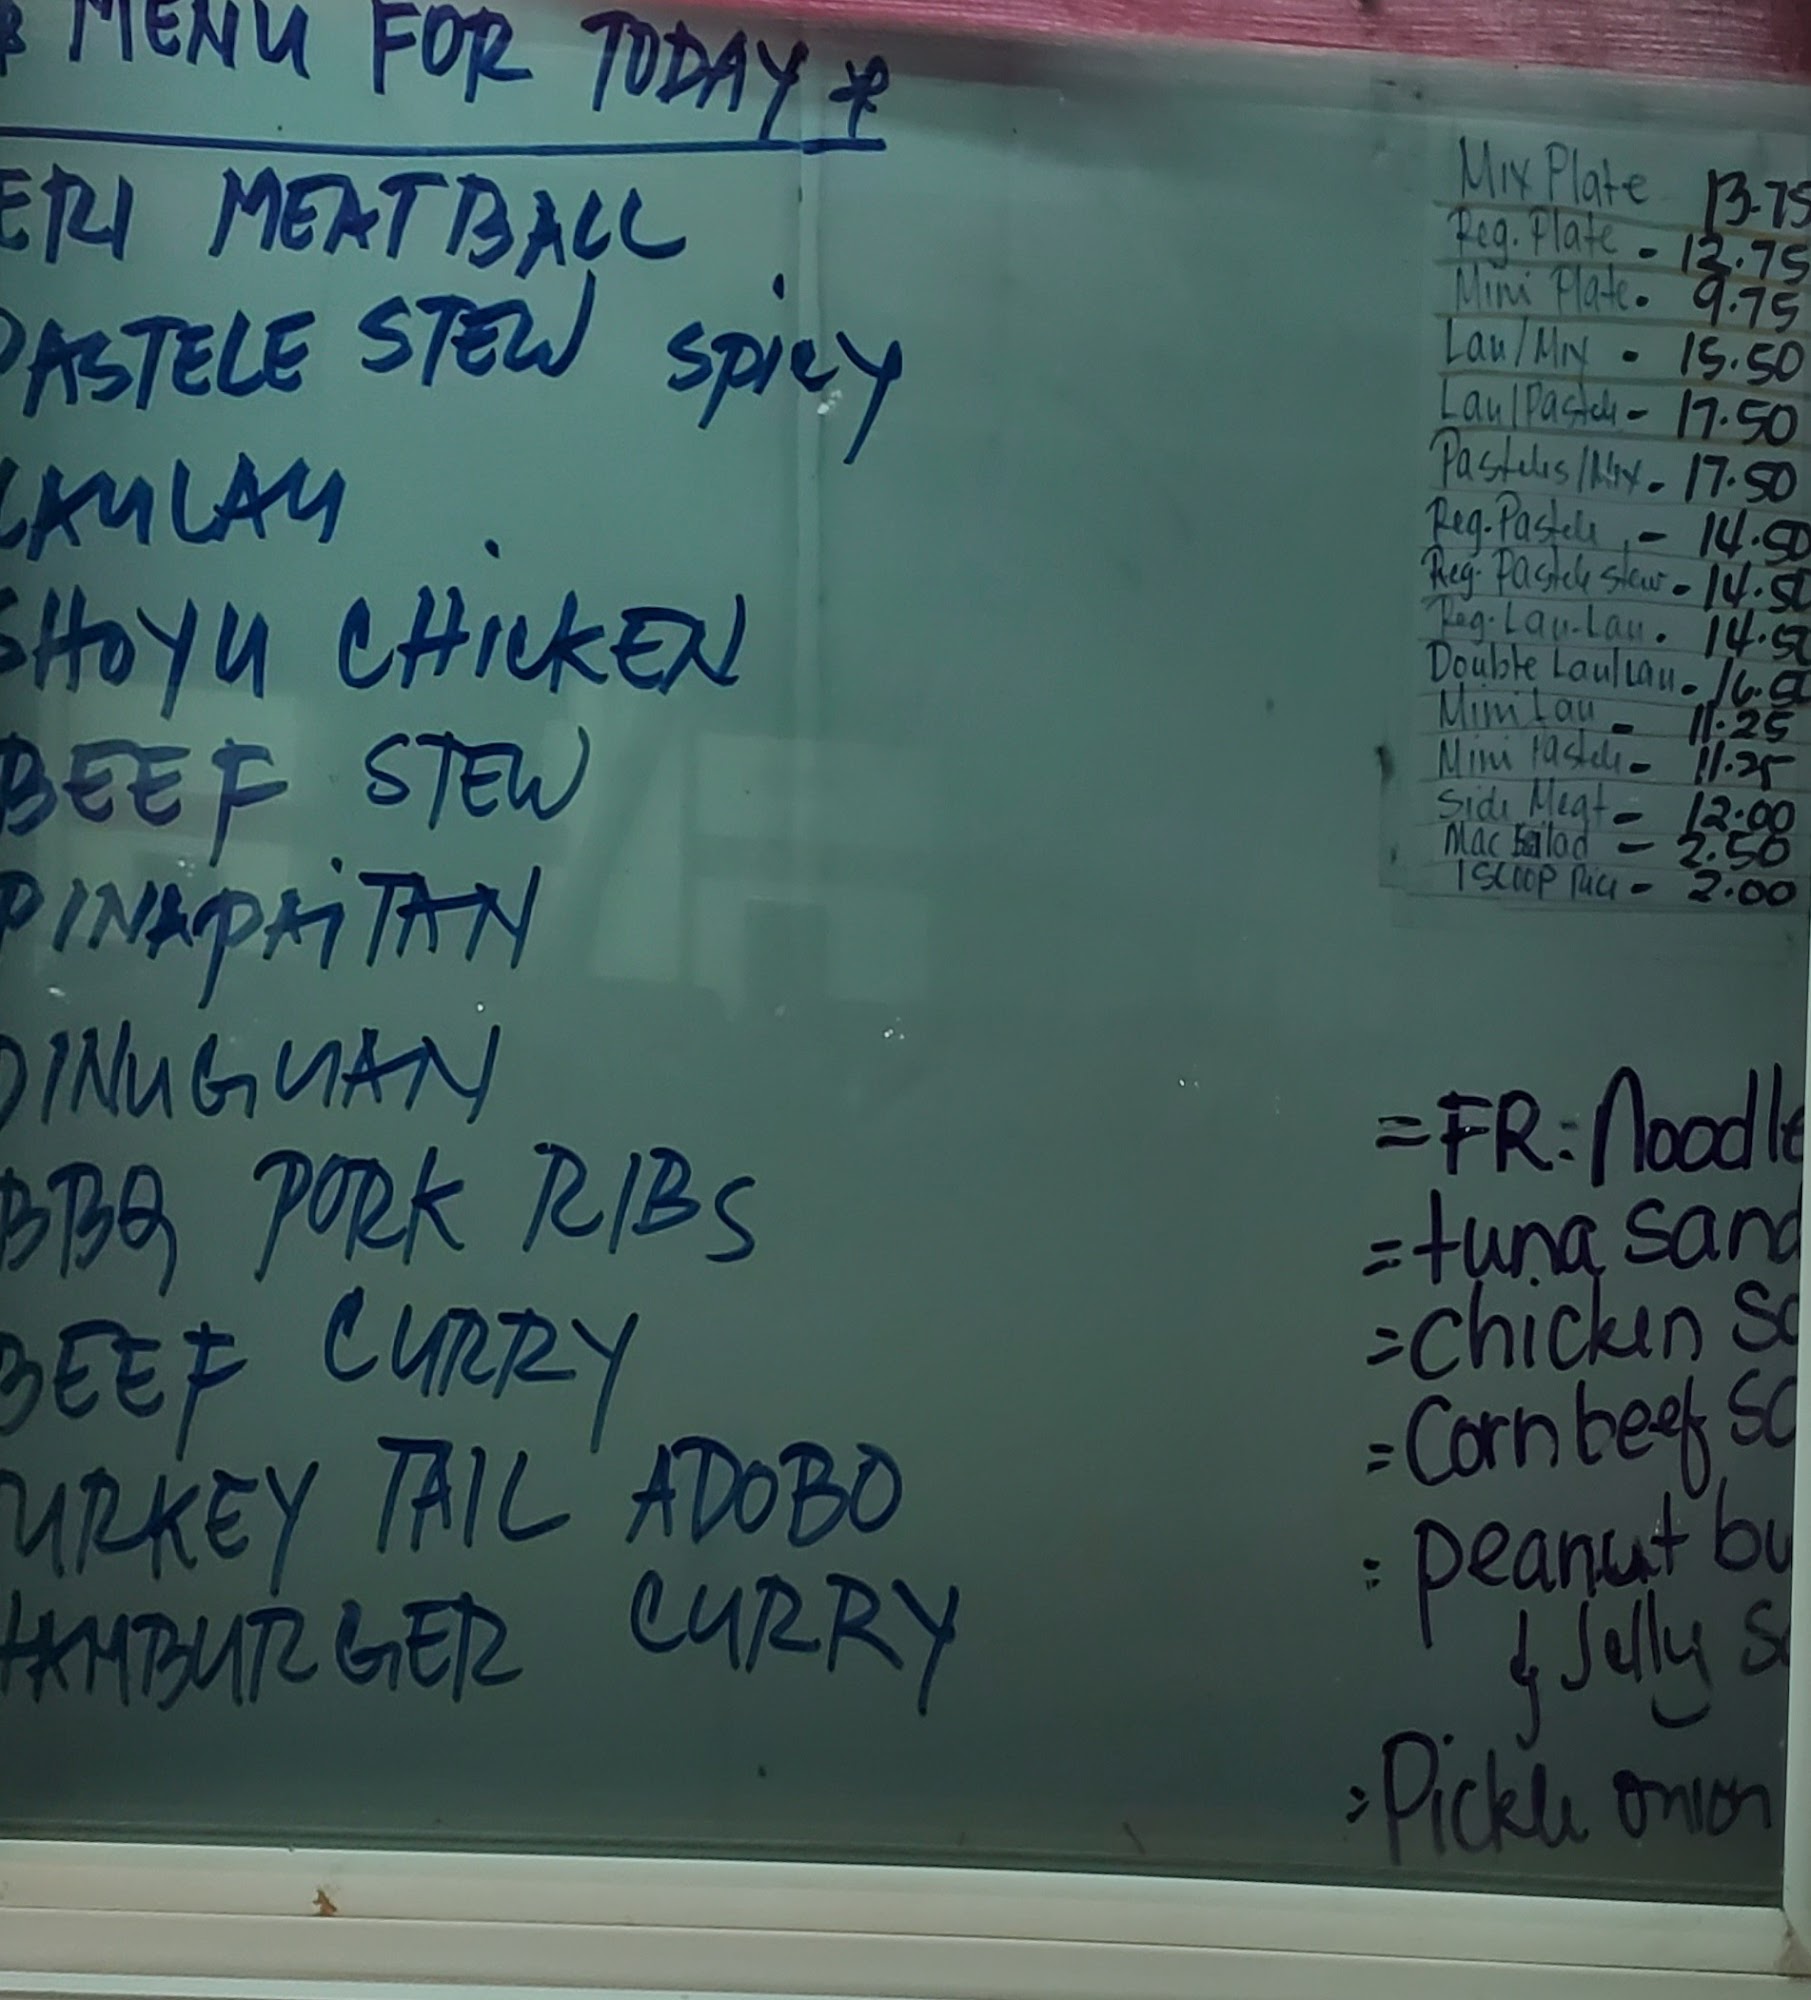 * MENU FOR TODAY *
ERI MEATBALL
PASTELE STEW spicy
LAULAU
SHOYU CHICKEN
BEEF STEW
PINAPAITAN
DINUGUAN
BBQ PORK RIBS
BEEF CURRY
TURKEY TAIL ADOBO
HAMBURGER CURRY
Mix Plate 13.75
Reg. Plate - 12.75
Mini Plate. 9.75
Lau/Mix - 15.50
Lau/Pastele - 17.50
Pasteles/Mix - 17.50
Reg. Pastele - 14.50
Reg. Pastele stew - 14.50
Reg. Lau-Lau. 14.50
Double Laulau - 16.50
Mini Lau - 11.25
Mini Pastele - 11.25
Side Meat - 12.00
Mac Salad - 2.50
1 SCOOP Rice - 2.00
= FR: Noodle
= tuna sand
= Chicken sa
= Corn beef sa
= peanut bu
& Jelly sa
= Pickle onion